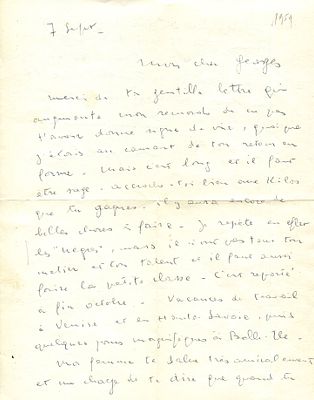 7 Sept.
1959
Mon cher Georges
merci de ta gentille lettre qui
augmente mon remords de ne pas
t'avoir donné signe de vie, quoique
j'étais au courant de ton retour en
forme. Mais c'est long et il faut
être sage. accroche-toi bien aux kilos
que tu gagnes. il y aura encore de
belles choses à faire. Je répète en effet
les "Nègres", mais il n'ont pas tous ton
métier et ton talent et il faut aussi
faire la petite classe. C'est reporté
à fin octobre. Vacances de travail
à Venise et en Haute-Savoie, puis
quelques jours magnifiques à Belle-Ile.
Ma femme te salue très amicalement
et me charge de te dire que quand tu